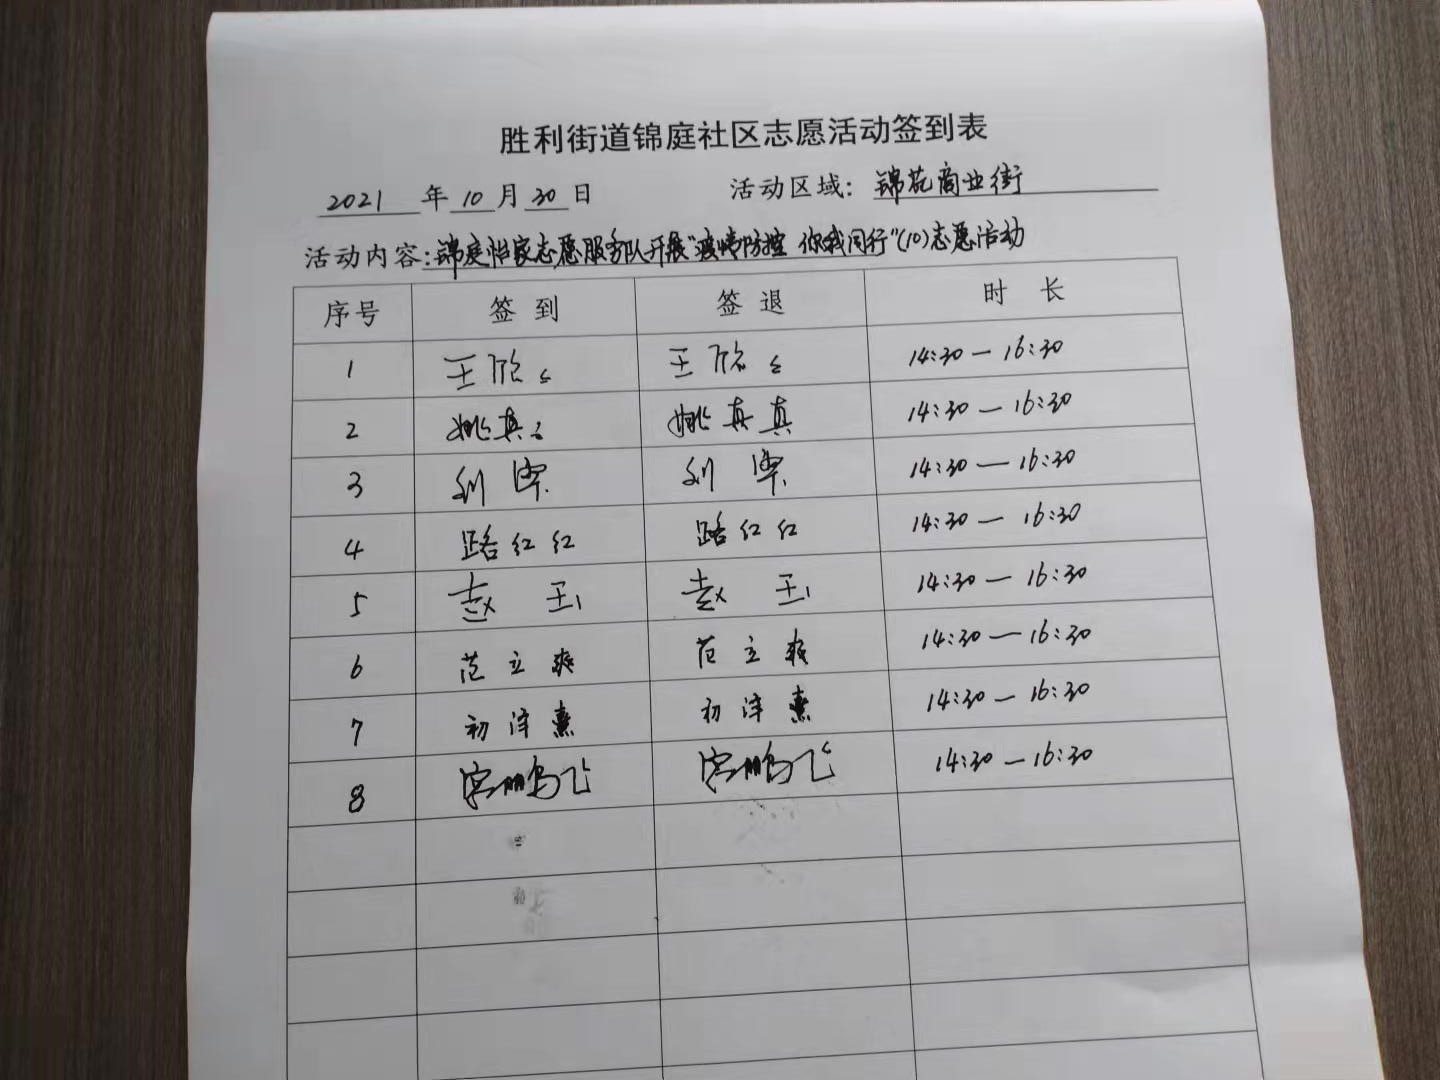 胜利街道锦庭社区志愿活动签到表
2021 年 10 月 30 日 活动区域: 锦苑商业街
活动内容:锦庭怡家志愿服务队开展"疫情防控 你我同行"(10)志愿活动
序号 签到 签退 时长
1 王欣 王欣 14:30—16:30
2 姚真 姚真真 14:30—16:30
3 刘 刘 14:30—16:30
4 路红红 路红红 14:30—16:30
5 赵玉 赵玉 14:30—16:30
6 范立爽 范立爽 14:30—16:30
7 初泽熹 初泽熹 14:30—16:30
8 宫鹏飞 宫鹏飞 14:30—16:30